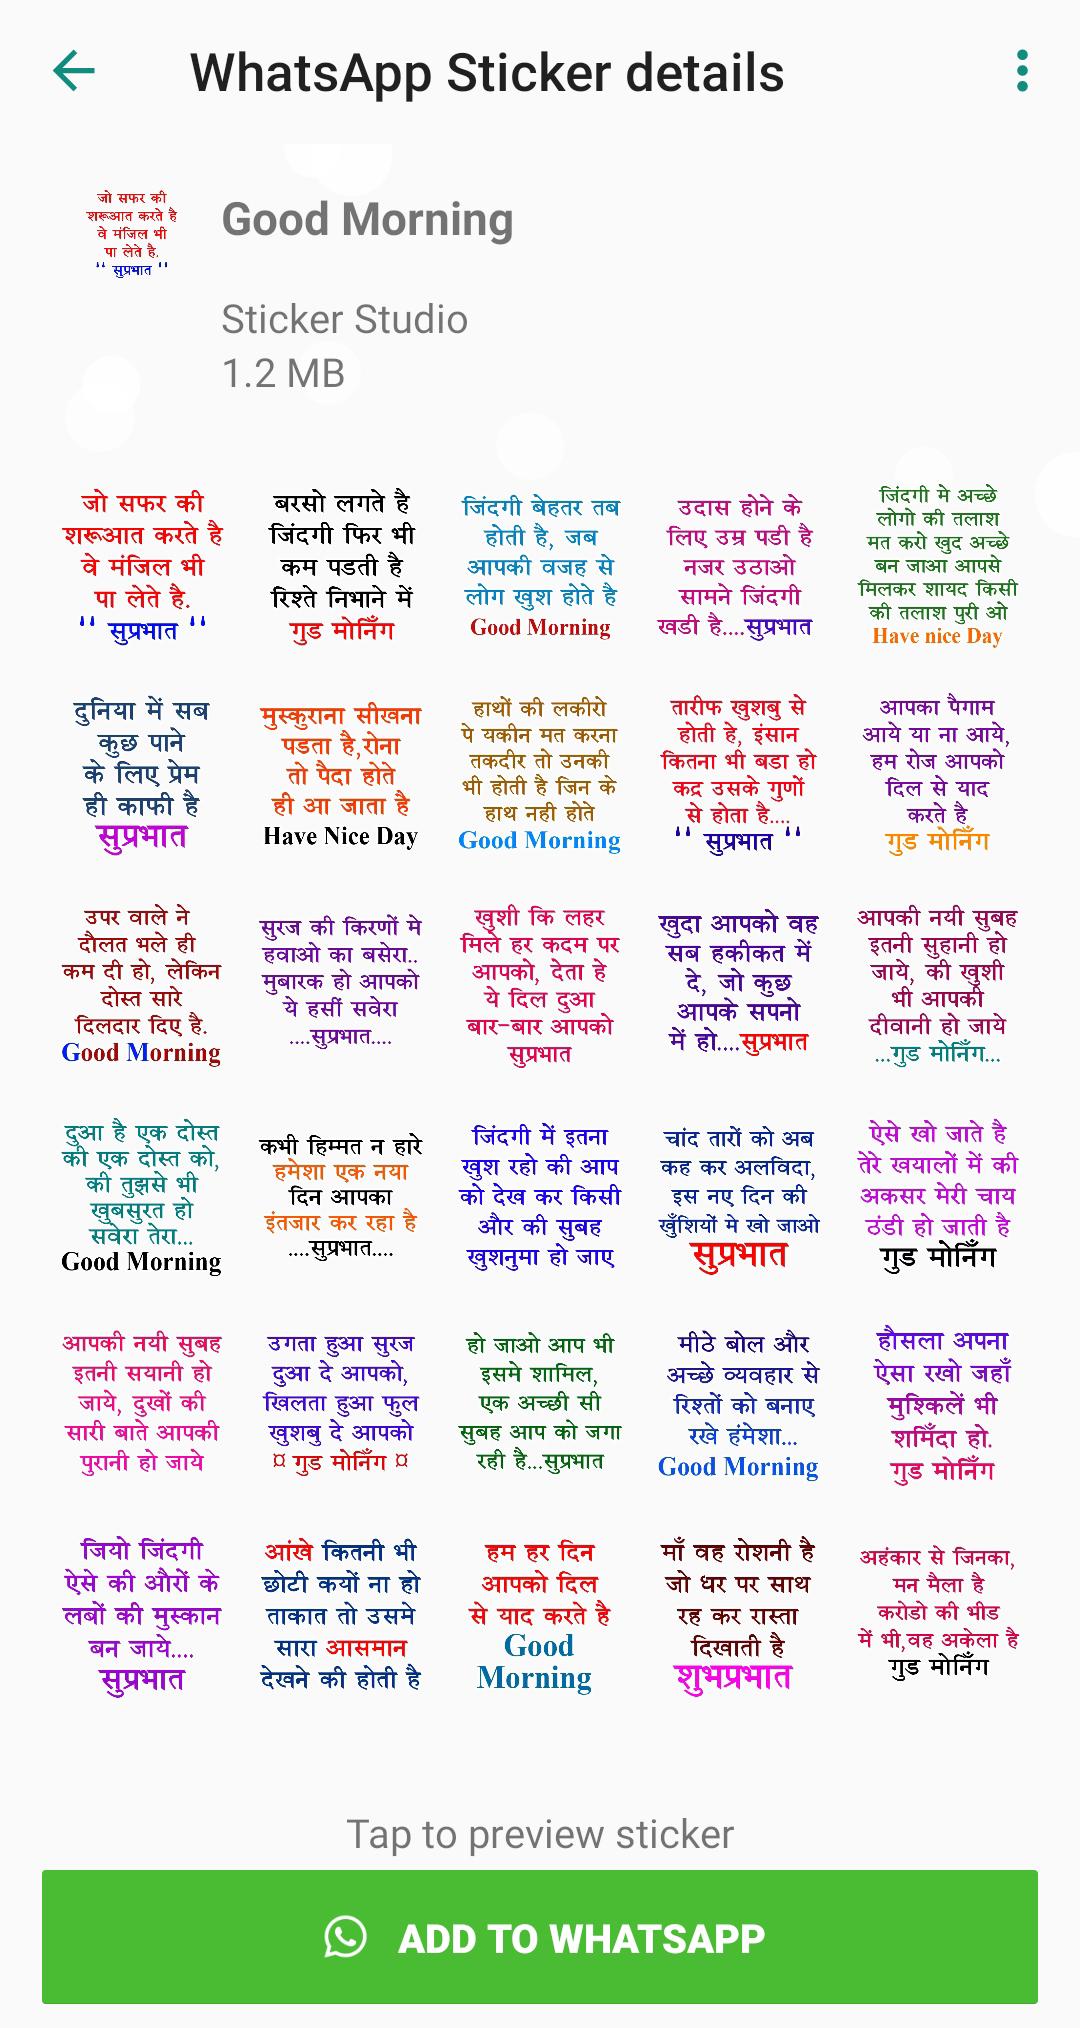 WhatsApp Sticker details
जो सफर की
शरूआत करते है
वे मंजिल भी
पा लेते है.
" सुप्रभात "
Good Morning
Sticker Studio
1.2 MB
जो सफर की
शरूआत करते है
वे मंजिल भी
पा लेते है.
" सुप्रभात "
बरसो लगते है
जिंदगी फिर भी
कम पडती है
रिश्ते निभाने में
गुड मोर्निंग
जिंदगी बेहतर तब
होती है, जब
आपकी वजह से
लोग खुश होते है
Good Morning
उदास होने के
लिए उम्र पडी है
नजर उठाओ
सामने जिंदगी
खडी है....सुप्रभात
जिंदगी मे अच्छे
लोगो की तलाश
मत करो खुद अच्छे
बन जाआ आपसे
मिलकर शायद किसी
की तलाश पुरी ओ
Have nice Day
दुनिया में सब
कुछ पाने
के लिए प्रेम
ही काफी है
सुप्रभात
मुस्कुराना सीखना
पडता है,रोना
तो पैदा होते
ही आ जाता है
Have Nice Day
हाथों की लकीरो
पे यकीन मत करना
तकदीर तो उनकी
भी होती है जिन के
हाथ नही होते
Good Morning
तारीफ खुशबु से
होती हे, इंसान
कितना भी बडा हो
कद्र उसके गुणों
से होता है....
" सुप्रभात "
आपका पैगाम
आये या ना आये,
हम रोज आपको
दिल से याद
करते है
गुड मोर्निंग
उपर वाले ने
दौलत भले ही
कम दी हो, लेकिन
दोस्त सारे
दिलदार दिए है.
Good Morning
सुरज की किरणों मे
हवाओ का बसेरा..
मुबारक हो आपको
ये हसीं सवेरा
....सुप्रभात....
खुशी कि लहर
मिले हर कदम पर
आपको, देता हे
ये दिल दुआ
बार-बार आपको
सुप्रभात
खुदा आपको वह
सब हकीकत में
दे, जो कुछ
आपके सपनो
में हो....सुप्रभात
आपकी नयी सुबह
इतनी सुहानी हो
जाये, की खुशी
भी आपकी
दीवानी हो जाये
...गुड मोर्निंग...
दुआ है एक दोस्त
की एक दोस्त को,
की तुझसे भी
खुबसुरत हो
सवेरा तेरा...
Good Morning
कभी हिम्मत न हारे
हमेशा एक नया
दिन आपका
इंतजार कर रहा है
....सुप्रभात....
जिंदगी में इतना
खुश रहो की आप
को देख कर किसी
और की सुबह
खुशनुमा हो जाए
चांद तारों को अब
कह कर अलविदा,
इस नए दिन की
खुँशियों मे खो जाओ
सुप्रभात
ऐसे खो जाते है
तेरे खयालों में की
अकसर मेरी चाय
ठंडी हो जाती है
गुड मोर्निंग
आपकी नयी सुबह
इतनी सयानी हो
जाये, दुखों की
सारी बाते आपकी
पुरानी हो जाये
उगता हुआ सुरज
दुआ दे आपको,
खिलता हुआ फुल
खुशबु दे आपको
¤ गुड मोर्निंग ¤
हो जाओ आप भी
इसमे शामिल,
एक अच्छी सी
सुबह आप को जगा
रही है...सुप्रभात
मीठे बोल और
अच्छे व्यवहार से
रिश्तों को बनाए
रखे हंमेशा...
Good Morning
हौसला अपना
ऐसा रखो जहाँ
मुश्किलें भी
शर्मिंदा हो.
गुड मोर्निंग
जियो जिंदगी
ऐसे की औरों के
लबों की मुस्कान
बन जाये....
सुप्रभात
आंखे कितनी भी
छोटी कयों ना हो
ताकात तो उसमे
सारा आसमान
देखने की होती है
हम हर दिन
आपको दिल
से याद करते है
Good
Morning
माँ वह रोशनी है
जो धर पर साथ
रह कर रास्ता
दिखाती है
शुभप्रभात
अहंकार से जिनका,
मन मैला है
करोडो की भीड
में भी,वह अकेला है
गुड मोर्निंग
Tap to preview sticker
ADD TO WHATSAPP